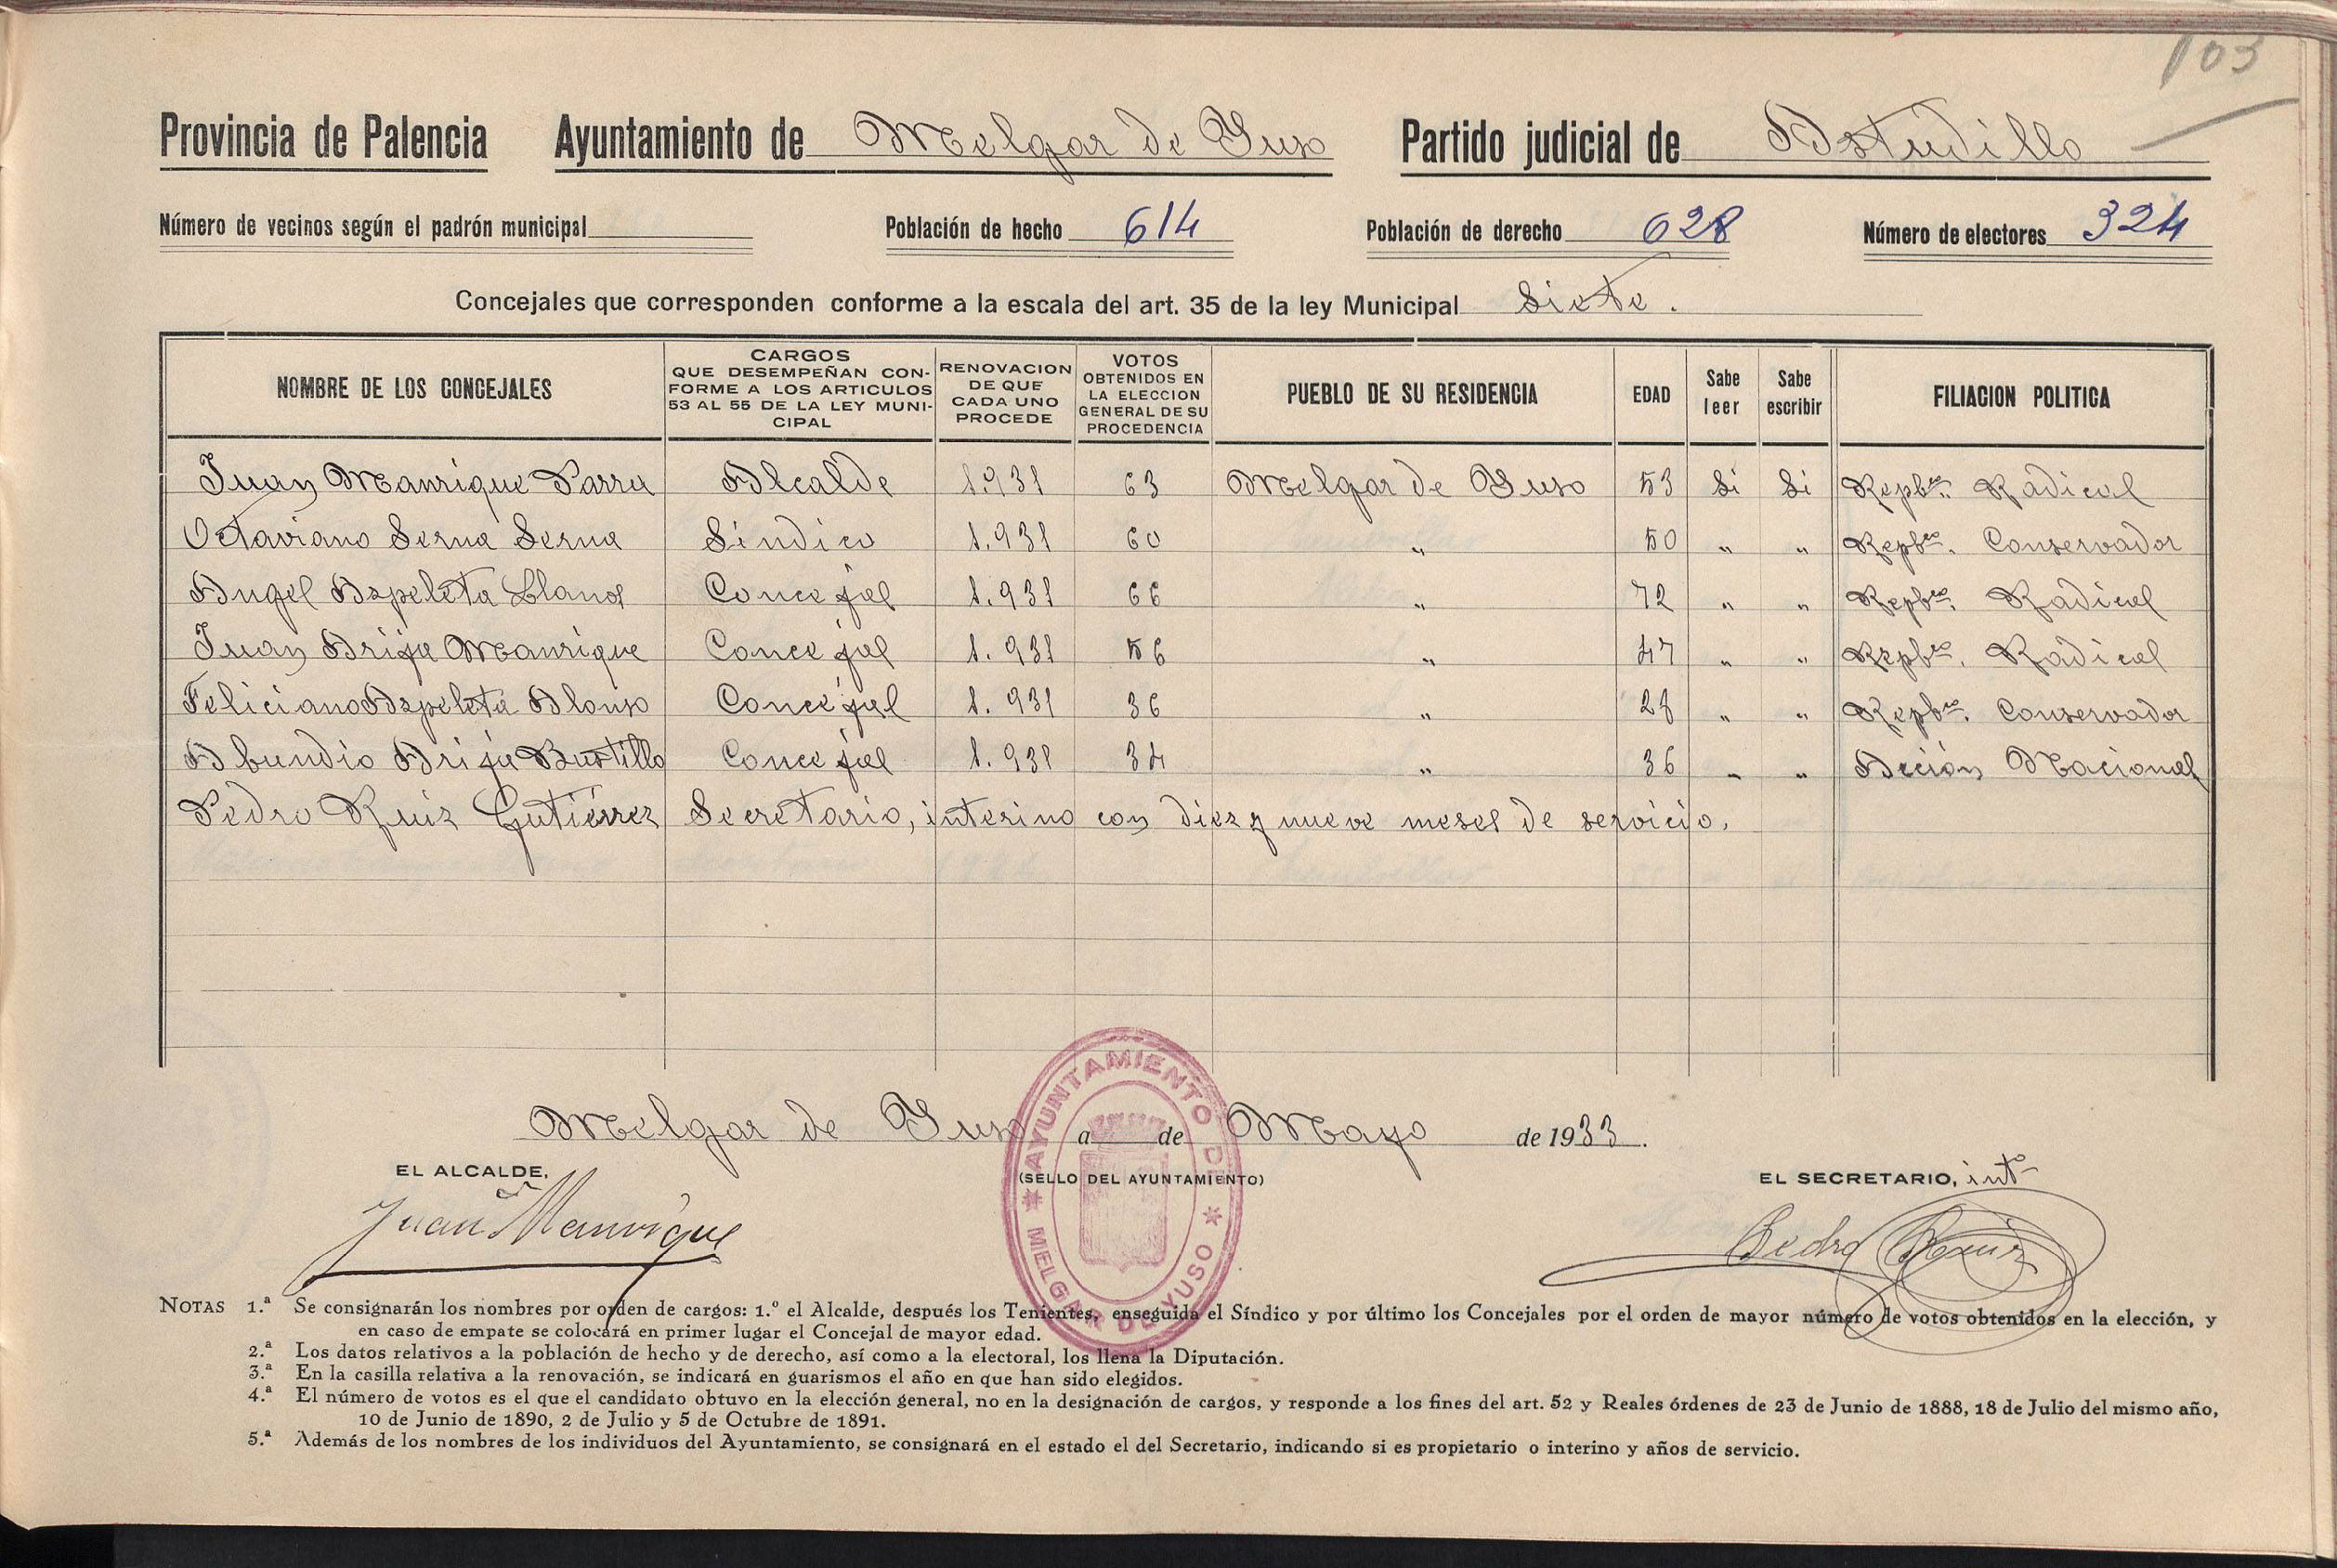 103
Provincia de Palencia Ayuntamiento de Melgar de Yuso Partido judicial de Astudillo
Número de vecinos según el padrón municipal Población de hecho 614 Población de derecho 628 Número de electores 324
Concejales que corresponden conforme a la escala del art. 35 de la ley Municipal Siete.
NOMBRE DE LOS CONCEJALES
CARGOS
QUE DESEMPEÑAN CON-
FORME A LOS ARTICULOS
53 AL 55 DE LA LEY MUNI-
CIPAL
RENOVACION
DE QUE
CADA UNO
PROCEDE
VOTOS
OBTENIDOS EN
LA ELECCION
GENERAL DE SU
PROCEDENCIA
PUEBLO DE SU RESIDENCIA
EDAD
Sabe
leer
Sabe
escribir
FILIACION POLITICA
Juan Manrique Parra Alcalde 1.931 63 Melgar de Yuso 53 Si Si Repbco. Radical
Octaviano Serna Serna Sindico 1.931 60 " 50 " " Repbco. Conservador
Angel Azpeleta Llanos Concejal 1.931 66 " 72 " " Repbco. Radical
Juan Arija Manrique Concejal 1.931 56 " 47 " " Repbco. Radical
Feliciano Azpeleta Alonso Concejal 1.931 36 " " " Repbco. Conservador
Abundio Arija Bustillo Concejal 1.931 34 " 36 " " Acción Nacional
Pedro Ruiz Gutiérrez Secretario, interino con diez y nueve meses de servicio.
Melgar de Yuso a de Mayo de 1933.
EL ALCALDE,
(SELLO DEL AYUNTAMIENTO)
EL SECRETARIO, intº
Juan Manrique
Pedro Ruiz
AYUNTAMIENTO DE * MELGAR DE YUSO *
NOTAS 1.ª Se consignarán los nombres por orden de cargos: 1.º el Alcalde, después los Tenientes, enseguida el Síndico y por último los Concejales por el orden de mayor número de votos obtenidos en la elección, y
en caso de empate se colocará en primer lugar el Concejal de mayor edad.
2.ª Los datos relativos a la población de hecho y de derecho, así como a la electoral, los llena la Diputación.
3.ª En la casilla relativa a la renovación, se indicará en guarismos el año en que han sido elegidos.
4.ª El número de votos es el que el candidato obtuvo en la elección general, no en la designación de cargos, y responde a los fines del art. 52 y Reales órdenes de 23 de Junio de 1888, 18 de Julio del mismo año,
10 de Junio de 1890, 2 de Julio y 5 de Octubre de 1891.
5.ª Además de los nombres de los individuos del Ayuntamiento, se consignará en el estado el del Secretario, indicando si es propietario o interino y años de servicio.